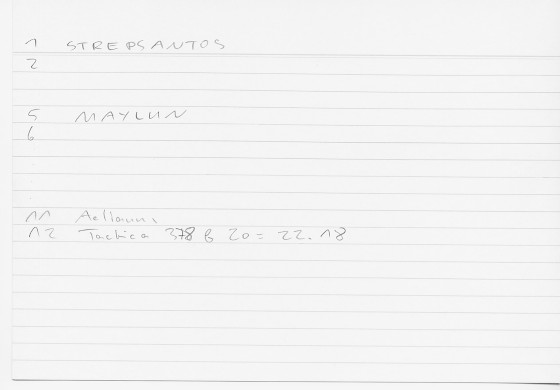 1 STREPSANTOS
2
5 MAYLUN
6
11 Aelianus,
12 Tactica 378 B 20 = 22.18